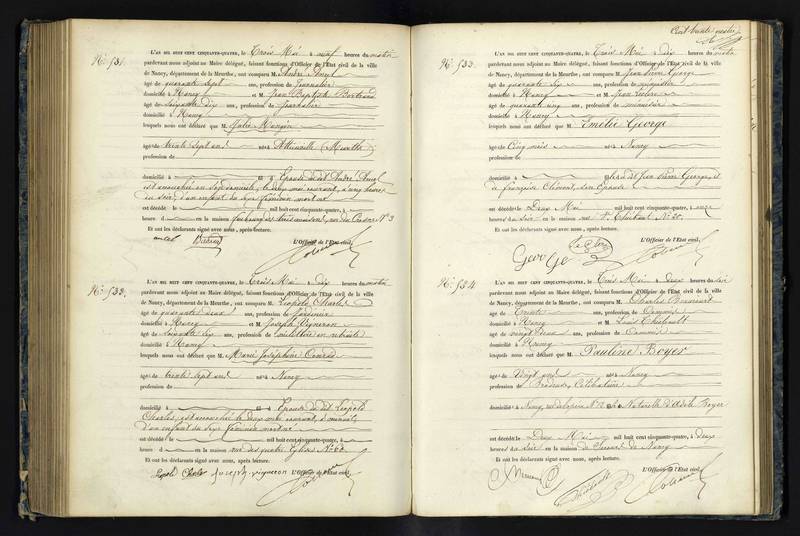 N.º 531.
L'AN MIL HUIT CENT CINQUANTE-QUATRE, le Trois Mai à neuf heures du matin
pardevant nous adjoint au Maire délégué, faisant fonctions d'Officier de l'Etat civil de la ville
de Nancy, département de la Meurthe, ont comparu M. André
âgé de quarante sept ans, profession de Journalier
domicilié à Nancy et M. Jean Baptiste Bertrand
âgé de soixante dix ans, profession de Journalier
domicilié à Nancy
lesquels nous ont déclaré que M. Julie Mangin
âgé de trente sept ans né à
profession de
domicilié à Epouse du dit André
est accouchée en sept semaines, le deux mai courant, à une heure
du soir, d'un enfant du sexe féminin mort né
est décédé le mil huit cent cinquante-quatre, à
heure d en la maison N.º 3
Et ont les déclarants signé avec nous, après lecture.
L'Officier de l'Etat civil,
N.º 532.
L'AN MIL HUIT CENT CINQUANTE-QUATRE, le Trois Mai à dix heures du matin
pardevant nous adjoint au Maire délégué, faisant fonctions d'Officier de l'Etat civil de la ville
de Nancy, département de la Meurthe, ont comparu M. Léopold Charles
âgé de quarante deux ans, profession de Jardinier
domicilié à Nancy et M. Joseph Vigneron
âgé de soixante dix ans, profession de en retraite
domicilié à Nancy
lesquels nous ont déclaré que M. Marie Joséphine Conrad
âgé de trente sept ans né à Nancy
profession de
domicilié à Epouse du dit Léopold
Charles, est accouchée le deux mai courant, à
d'un enfant du sexe féminin mort né
est décédé le mil huit cent cinquante-quatre, à
heure d en la maison rue des quatre Eglises N.º 60
Et ont les déclarants signé avec nous, après lecture.
Léopold Charles Joseph vigneron L'Officier de l'Etat civil,
Cent trente quatre
N.º 533
L'AN MIL HUIT CENT CINQUANTE-QUATRE, le Trois Mai à dix heures du matin
pardevant nous adjoint au Maire délégué, faisant fonctions d'Officier de l'Etat civil de la ville
de Nancy, département de la Meurthe, ont comparu M. Jean Pierre George
âgé de quarante six ans, profession de menuisier
domicilié à Nancy et M. Jean
âgé de quarante cinq ans, profession de menuisier
domicilié à Nancy
lesquels nous ont déclaré que M. Emélie George
âgé de Cinq mois né à Nancy
profession de
domicilié à fils de Jean Pierre George, et
de françoise Clément, son Epouse
est décédé le Deux Mai mil huit cent cinquante-quatre, à onze
heures du soir en la maison rue St Thiébaut N.º 20.
Et ont les déclarants signé avec nous, après lecture.
L'Officier de l'Etat civil,
George
N.º 534
L'AN MIL HUIT CENT CINQUANTE-QUATRE, le Trois Mai à deux heures du soir
pardevant nous adjoint au Maire délégué, faisant fonctions d'Officier de l'Etat civil de la ville
de Nancy, département de la Meurthe, ont comparu M. Charles
âgé de Trente ans, profession de Commis
domicilié à Nancy et M. Louis
âgé de vingt deux ans, profession de Commis
domicilié à Nancy
lesquels nous ont déclaré que M. Pauline Boyer
âgé de Vingt ans né à Nancy
profession de Brodeuse, Célibataire
domicilié à Nancy, fille Naturelle d'Adèle Boyer
est décédé le Deux Mai mil huit cent cinquante-quatre, à deux
heures du soir en la maison de Secours de Nancy
Et ont les déclarants signé avec nous, après lecture.
L'Officier de l'Etat civil,